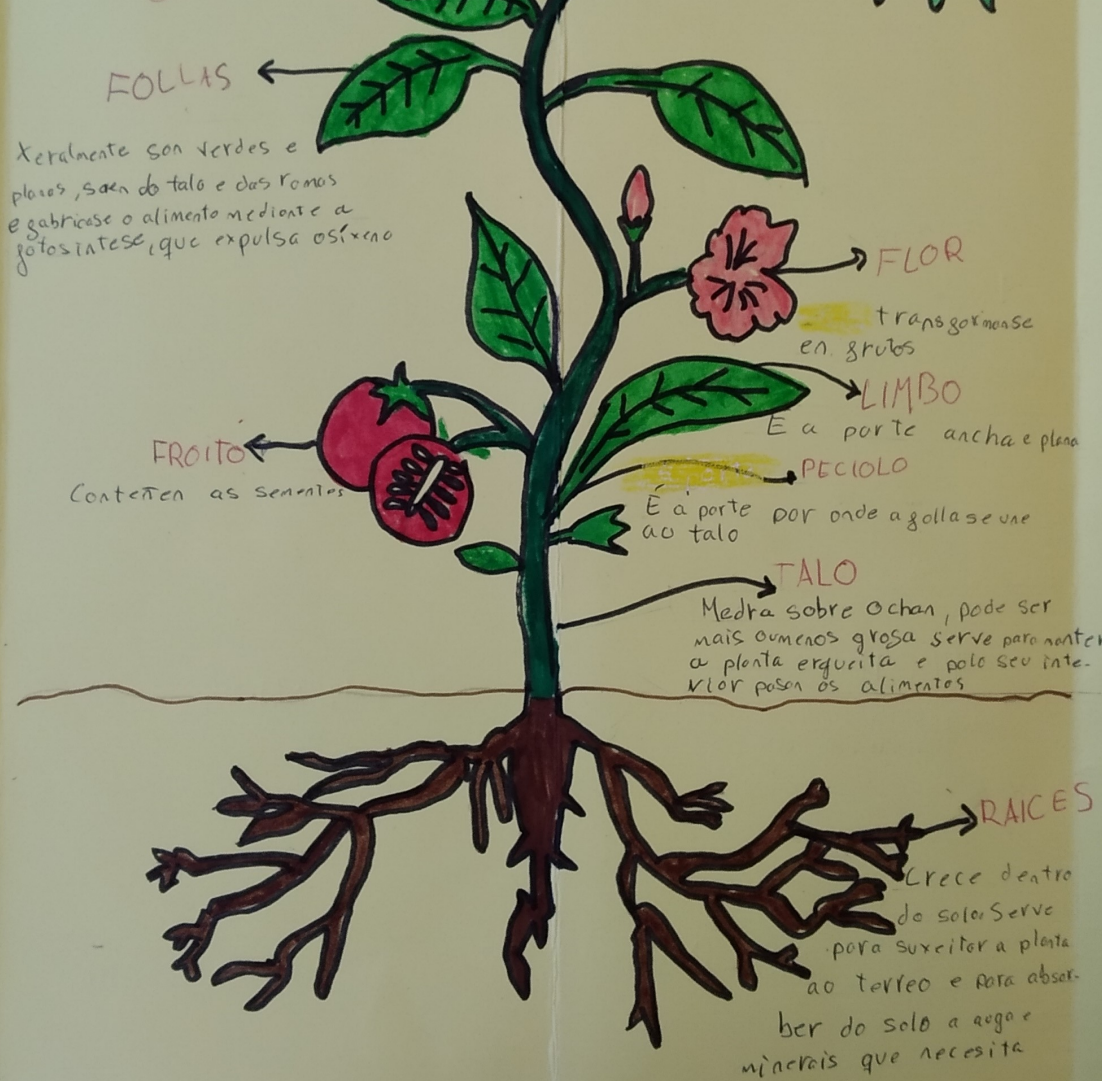 FOLLAS
Xeralmente son verdes e
planas, saen do talo e das ramas
e fabricase o alimento mediante a
fotosintese, que expulsa osíxeno
FLOR
transformanse
en frutos
LIMBO
E a parte ancha e plana
FROITO
Conteñen as sementes
PECIOLO
É a parte por onde a folla se une
ao talo
TALO
Medra sobre o chan, pode ser
mais ou menos grosa serve para manter
a planta ergueita e polo seu inte-
rior pasan os alimentos
RAICES
Crece dentro
do solo. Serve
para suxeitar a planta
ao terreo e para absor-
ber do solo a auga e
minerais que necesita